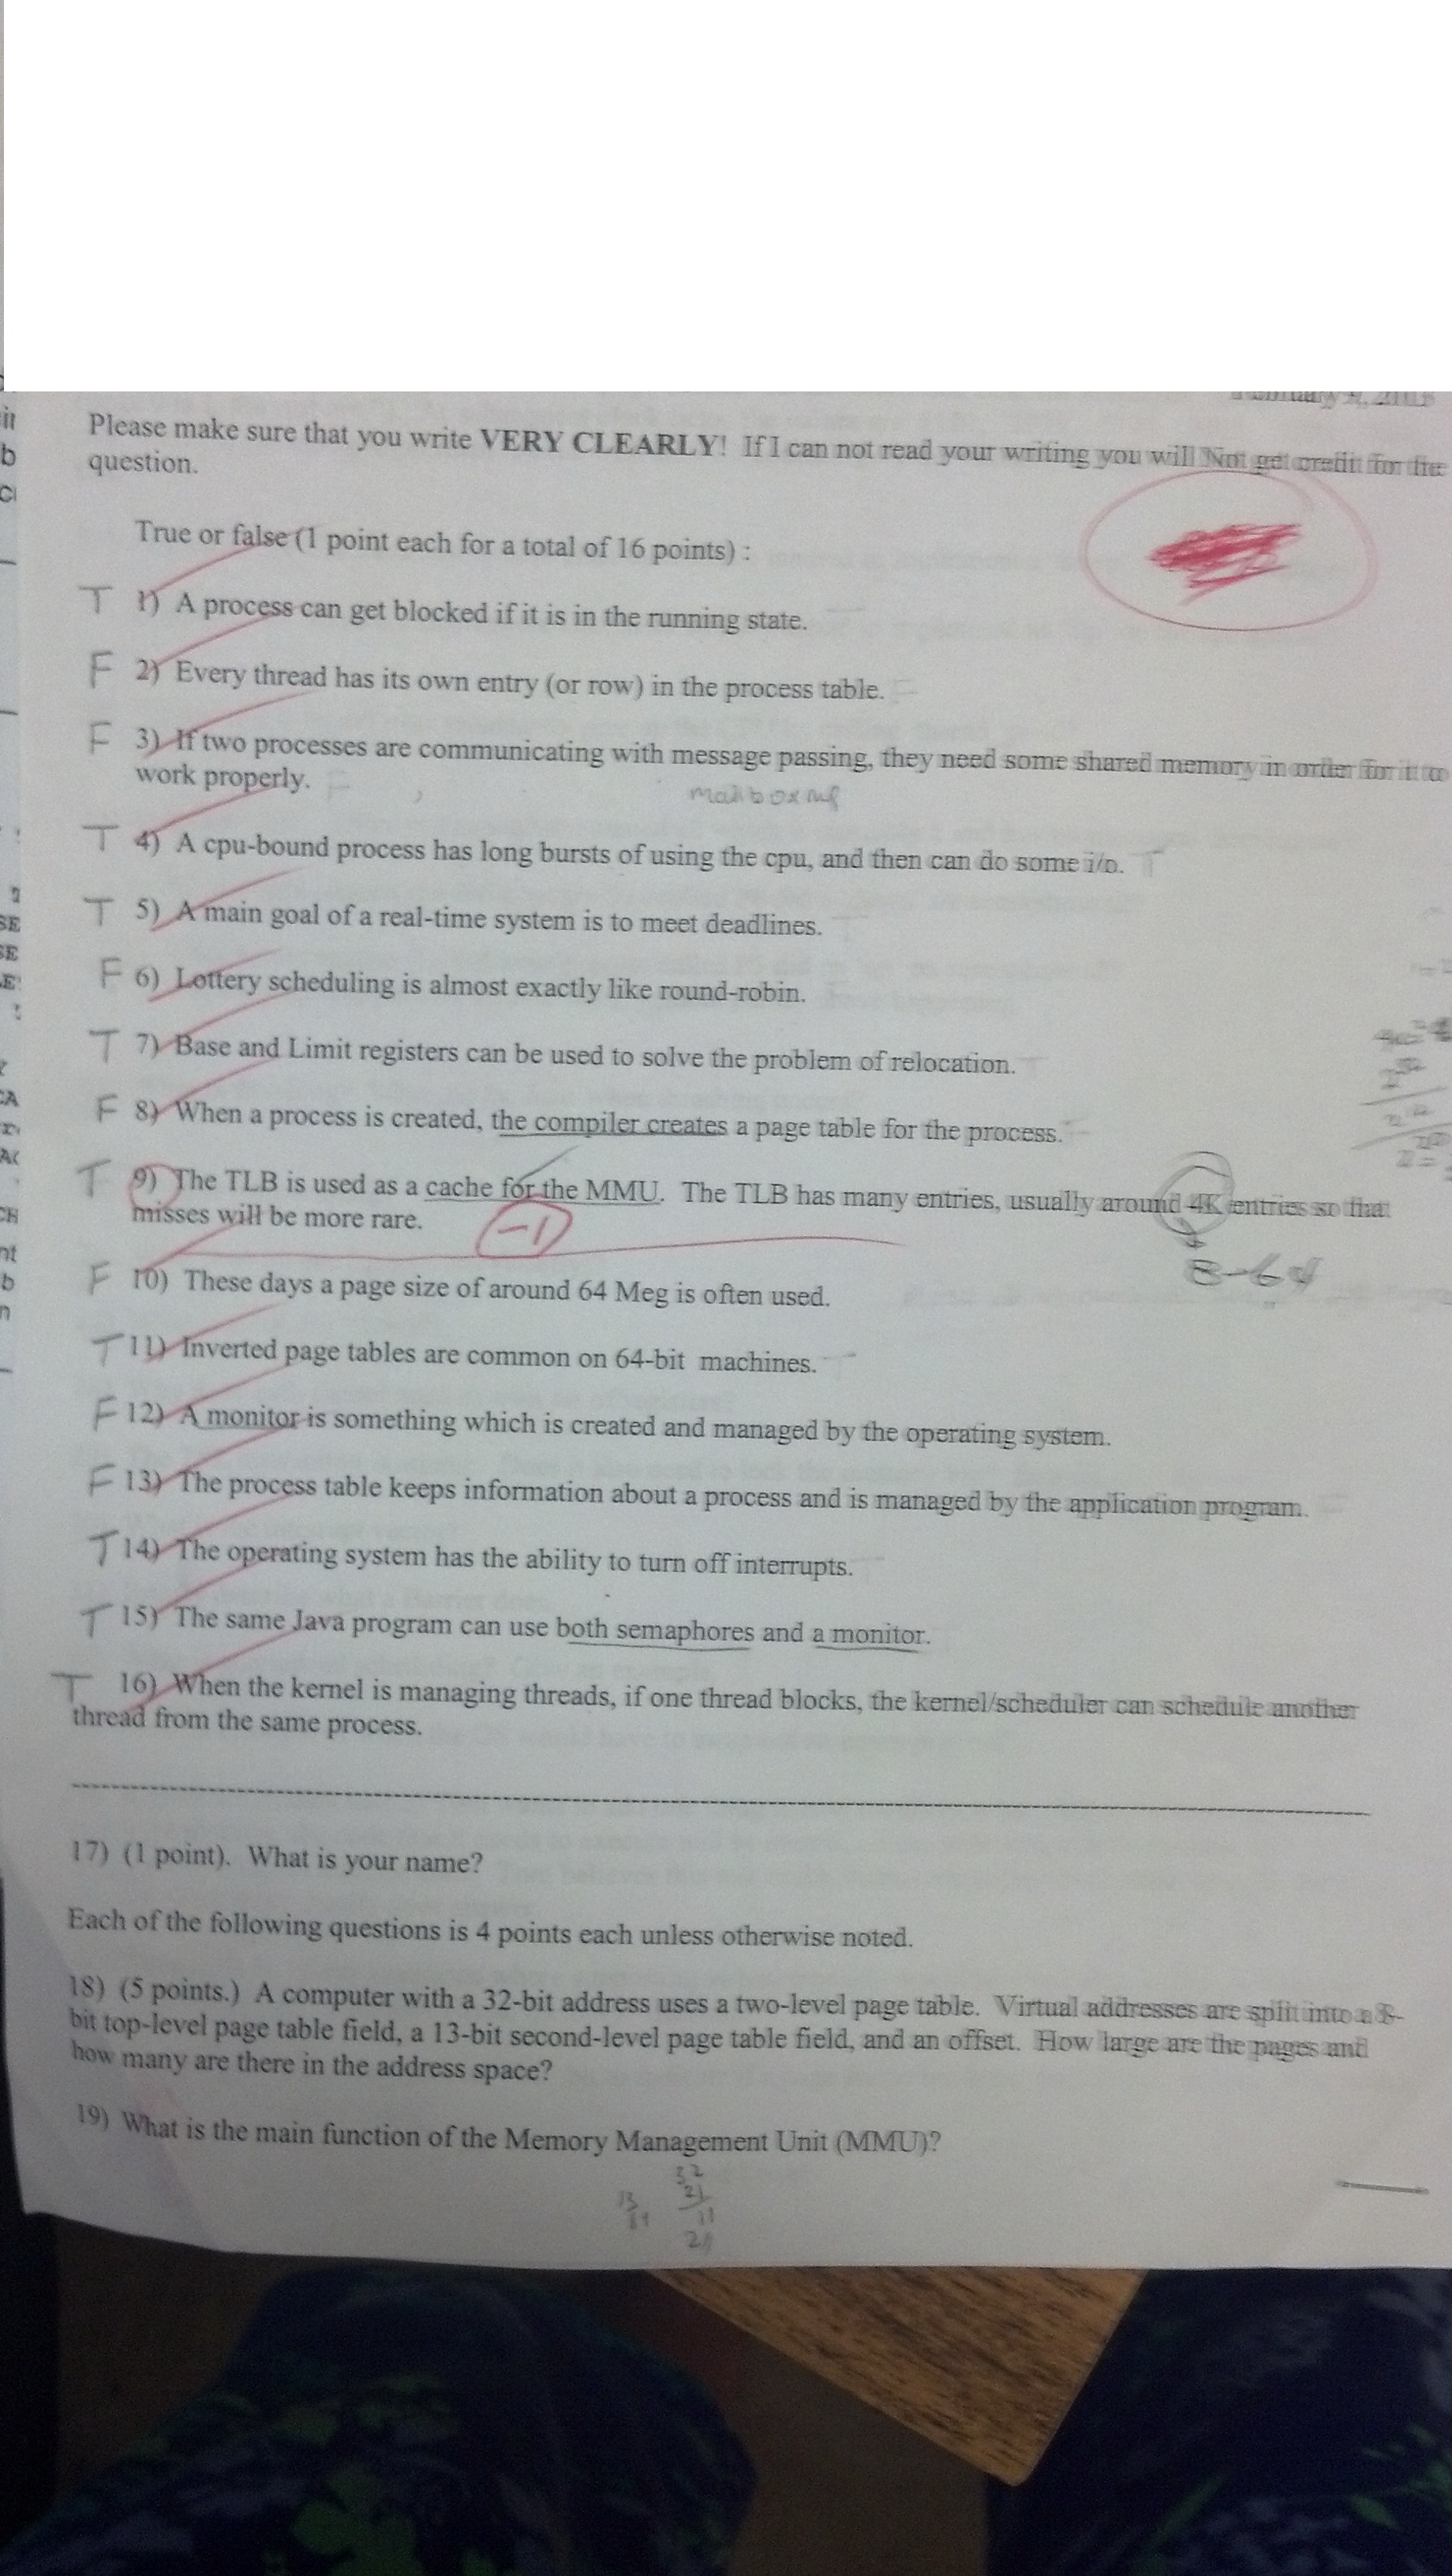 Please make sure that you write VERY CLEARLY! If I can not read your writing you will Not get credit for the
question.
True or false (1 point each for a total of 16 points) :
T 1) A process can get blocked if it is in the running state.
F 2) Every thread has its own entry (or row) in the process table.
F 3) If two processes are communicating with message passing, they need some shared memory in order for it to
work properly.
T 4) A cpu-bound process has long bursts of using the cpu, and then can do some i/o.
T 5) A main goal of a real-time system is to meet deadlines.
F 6) Lottery scheduling is almost exactly like round-robin.
T 7) Base and Limit registers can be used to solve the problem of relocation.
F 8) When a process is created, the compiler creates a page table for the process.
T 9) The TLB is used as a cache for the MMU. The TLB has many entries, usually around 4K entries so that
misses will be more rare.
-1
8-64
F 10) These days a page size of around 64 Meg is often used.
T 11) Inverted page tables are common on 64-bit machines.
F 12) A monitor is something which is created and managed by the operating system.
F 13) The process table keeps information about a process and is managed by the application program.
T 14) The operating system has the ability to turn off interrupts.
T 15) The same Java program can use both semaphores and a monitor.
T 16) When the kernel is managing threads, if one thread blocks, the kernel/scheduler can schedule another
thread from the same process.
17) (1 point). What is your name?
Each of the following questions is 4 points each unless otherwise noted.
18) (5 points.) A computer with a 32-bit address uses a two-level page table. Virtual addresses are split into a 8-
bit top-level page table field, a 13-bit second-level page table field, and an offset. How large are the pages and
how many are there in the address space?
19) What is the main function of the Memory Management Unit (MMU)?
32
21
11